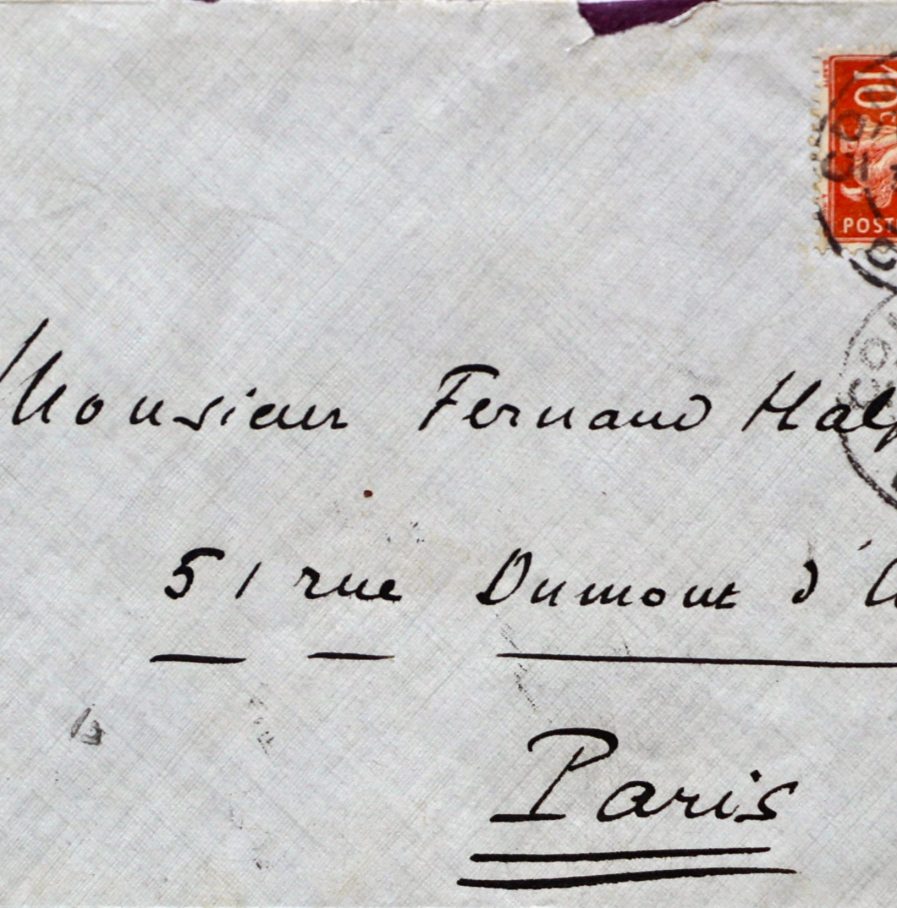 10c
POST
Monsieur Fernand Halp
51 rue Dumont d'U
Paris